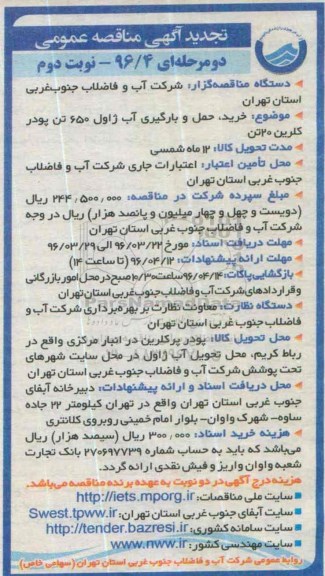 تجدید آگهی مناقصه عمومی
دومرحله‌ای ۹۶/۴ - نوبت دوم
دستگاه مناقصه‌گزار: شرکت آب و فاضلاب جنوب‌غربی
استان تهران
موضوع: خرید، حمل و بارگیری آب ژاول ۶۵۰ تن پودر
کلرین ۲۰تن
مدت تحویل کالا: ۱۲ ماه شمسی
محل تأمین اعتبار: اعتبارات جاری شرکت آب و فاضلاب
جنوب غربی استان تهران
مبلغ سپرده شرکت در مناقصه: ۲۴۴,۵۰۰,۰۰۰ ریال
(دویست و چهل و چهار میلیون و پانصد هزار) ریال در وجه
شرکت آب و فاضلاب جنوب غربی استان تهران
مهلت دریافت اسناد: مورخ ۹۶/۰۳/۲۲ الی ۹۶/۰۳/۲۹
مهلت ارائه پیشنهادات: ۹۶/۰۴/۱۲ (تا ساعت ۱۴)
بازگشایی پاکات: ۹۶/۰۴/۱۴ ساعت ۱۰/۳۰ صبح در محل امور بازرگانی
و قراردادهای شرکت آب و فاضلاب جنوب غربی استان تهران
دستگاه نظارت: معاونت نظارت بر بهره‌برداری شرکت آب و
فاضلاب جنوب غربی استان تهران
محل تحویل کالا: پودر پرکلرین در انبار مرکزی واقع در
رباط کریم، محل تحویل آب ژاول در محل سایت شهرهای
تحت پوشش شرکت آب و فاضلاب جنوب غربی استان تهران
محل دریافت اسناد و ارائه پیشنهادات: دبیرخانه آبفای
جنوب غربی استان تهران واقع در تهران کیلومتر ۲۲ جاده
ساوه- شهرک واوان- بلوار امام خمینی روبروی کلانتری
هزینه خرید اسناد: ۳۰۰,۰۰۰ ریال (سیصد هزار) ریال
می‌باشد که باید به حساب شماره ۲۷۰۶۹۷۷۳۹ بانک تجارت
شعبه واوان واریز و فیش نقدی ارائه گردد.
هزینه درج آگهی در دو نوبت به عهده برنده مناقصه می‌باشد.
سایت ملی مناقصات: http://iets.mporg.ir
سایت آبفای جنوب غربی استان تهران: Swest.tpww.ir
سایت سامانه کشوری: http://tender.bazresi.ir
سایت مهندسی کشور: www.nww.ir
روابط عمومی شرکت آب و فاضلاب جنوب غربی استان تهران (سهامی خاص)